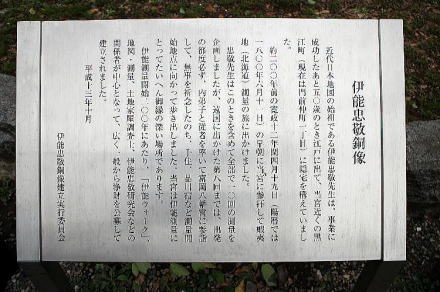 伊能忠敬銅像
近代日本地図の始祖である伊能忠敬先生は、事業に
成功したあと五〇歳のとき江戸に出て、当宮近くの黒
江町(現在は門前仲町一丁目)に隠宅を構えていまし
た。
約二〇〇年前の寛政十二年閏四月十九日(陽暦では
一八〇〇年六月十一日)の早朝に当宮に参拝して蝦夷
地(北海道)測量の旅に出かけました。
忠敬先生はこのときを含めて全部で一〇回の測量を
企画しましたが、遠国に出かけた第八回までは、出発
の都度必ず、内弟子と従者を率いて富岡八幡宮に参詣
して、無事を祈念したのち、千住、品川宿など測量開
始地点に向かって歩き出しました。当宮は伊能測量に
とってたいへん御縁の深い場所であります。
伊能測量開始二〇〇年にあたり、「伊能ウォーク」、
地図・測量、土地家屋調査士、伊能忠敬研究会などの
関係者が中心となって、広く一般から浄財を公募して
建立されました。
平成十三年十月
伊能忠敬銅像建立実行委員会